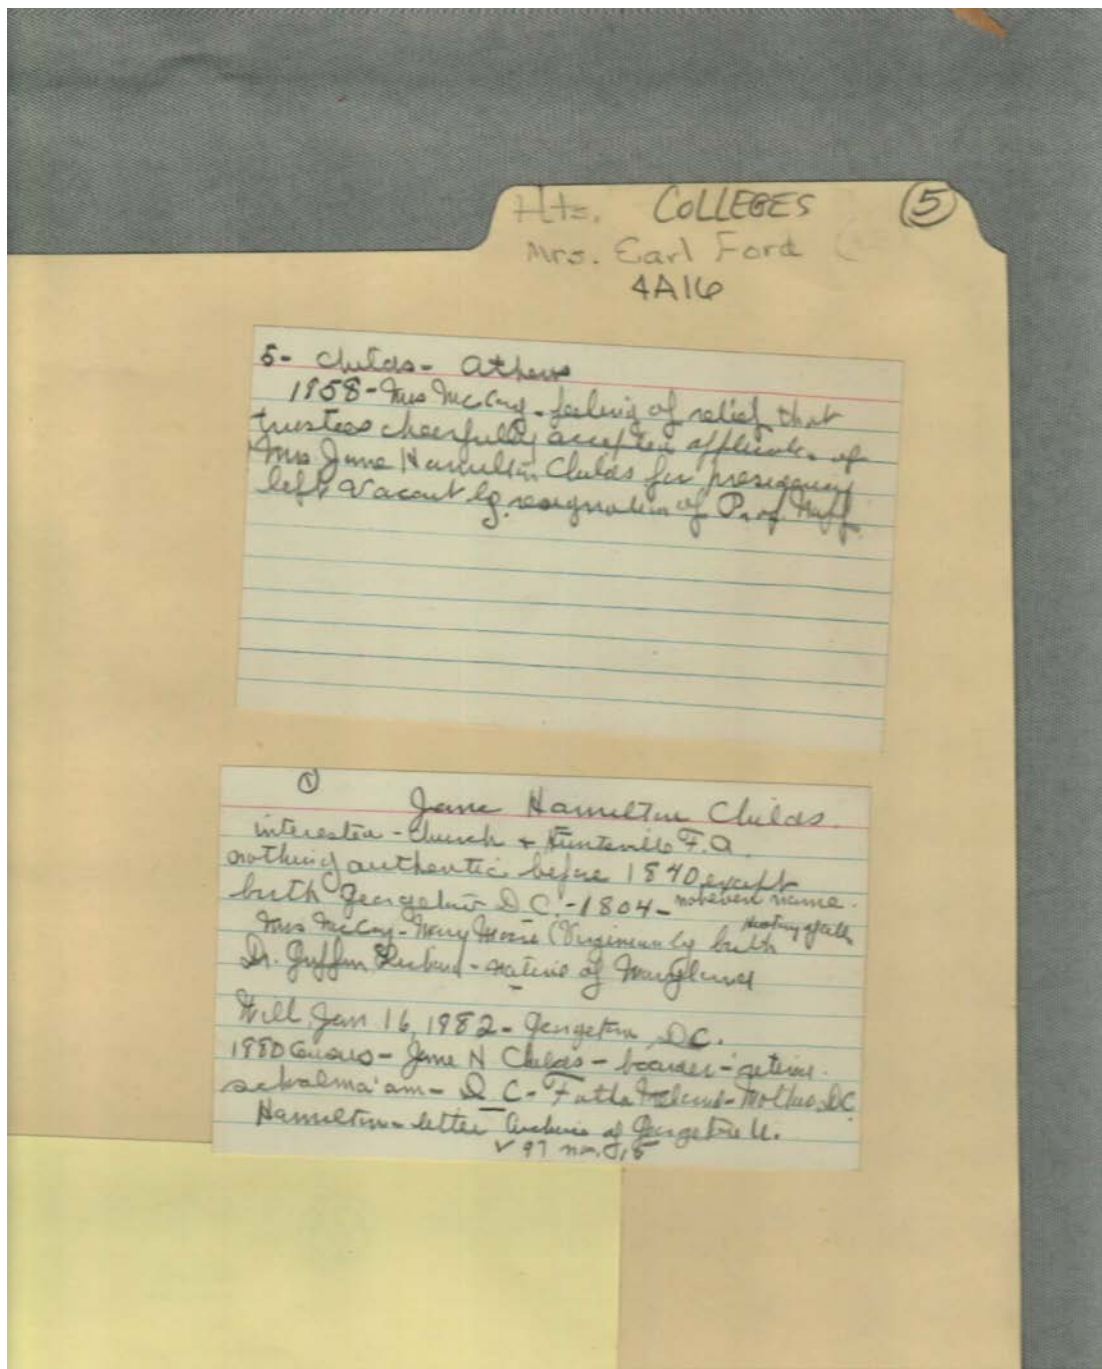 Hts. COLLEGES (5)
Mrs. Earl Ford
4A16
5- Childs- Athens
1858-Mrs McCoy-feeling of relief that
trustees cheerfully accepted applicat. of
Mrs Jane Hamilton Childs for presidency
left vacant by resignation of Prof. Huff.
(1)
Jane Hamilton Childs.
interested - Church + Huntsville F.A.
nothing authentic before 1840 except
birth Georgetown D.C. - 1804 - not even name.
Mrs McCoy - Mary Moore (Virginian by birth
Dr. - native of Maryland
Will Jan 16, 1882 - Georgetown D.C.
1880 Census - Jane H Childs - boarder - retired
schoolma'am - D C - Father Ireland - Mother D.C.
Hamilton - letter Archives of Georgetown U.